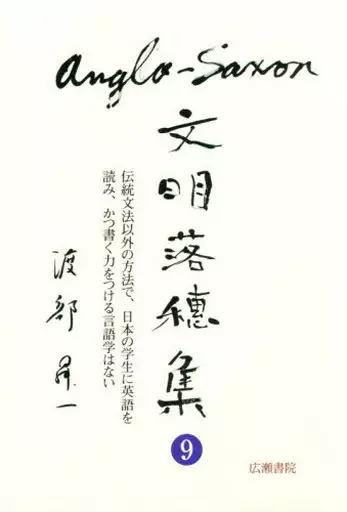 Anglo-Saxon
文明落穗集
伝統文法以外の方法で、日本の学生に英語を
読み、かつ書く力をつける言語学はない
渡部昇一
9
広瀬書院